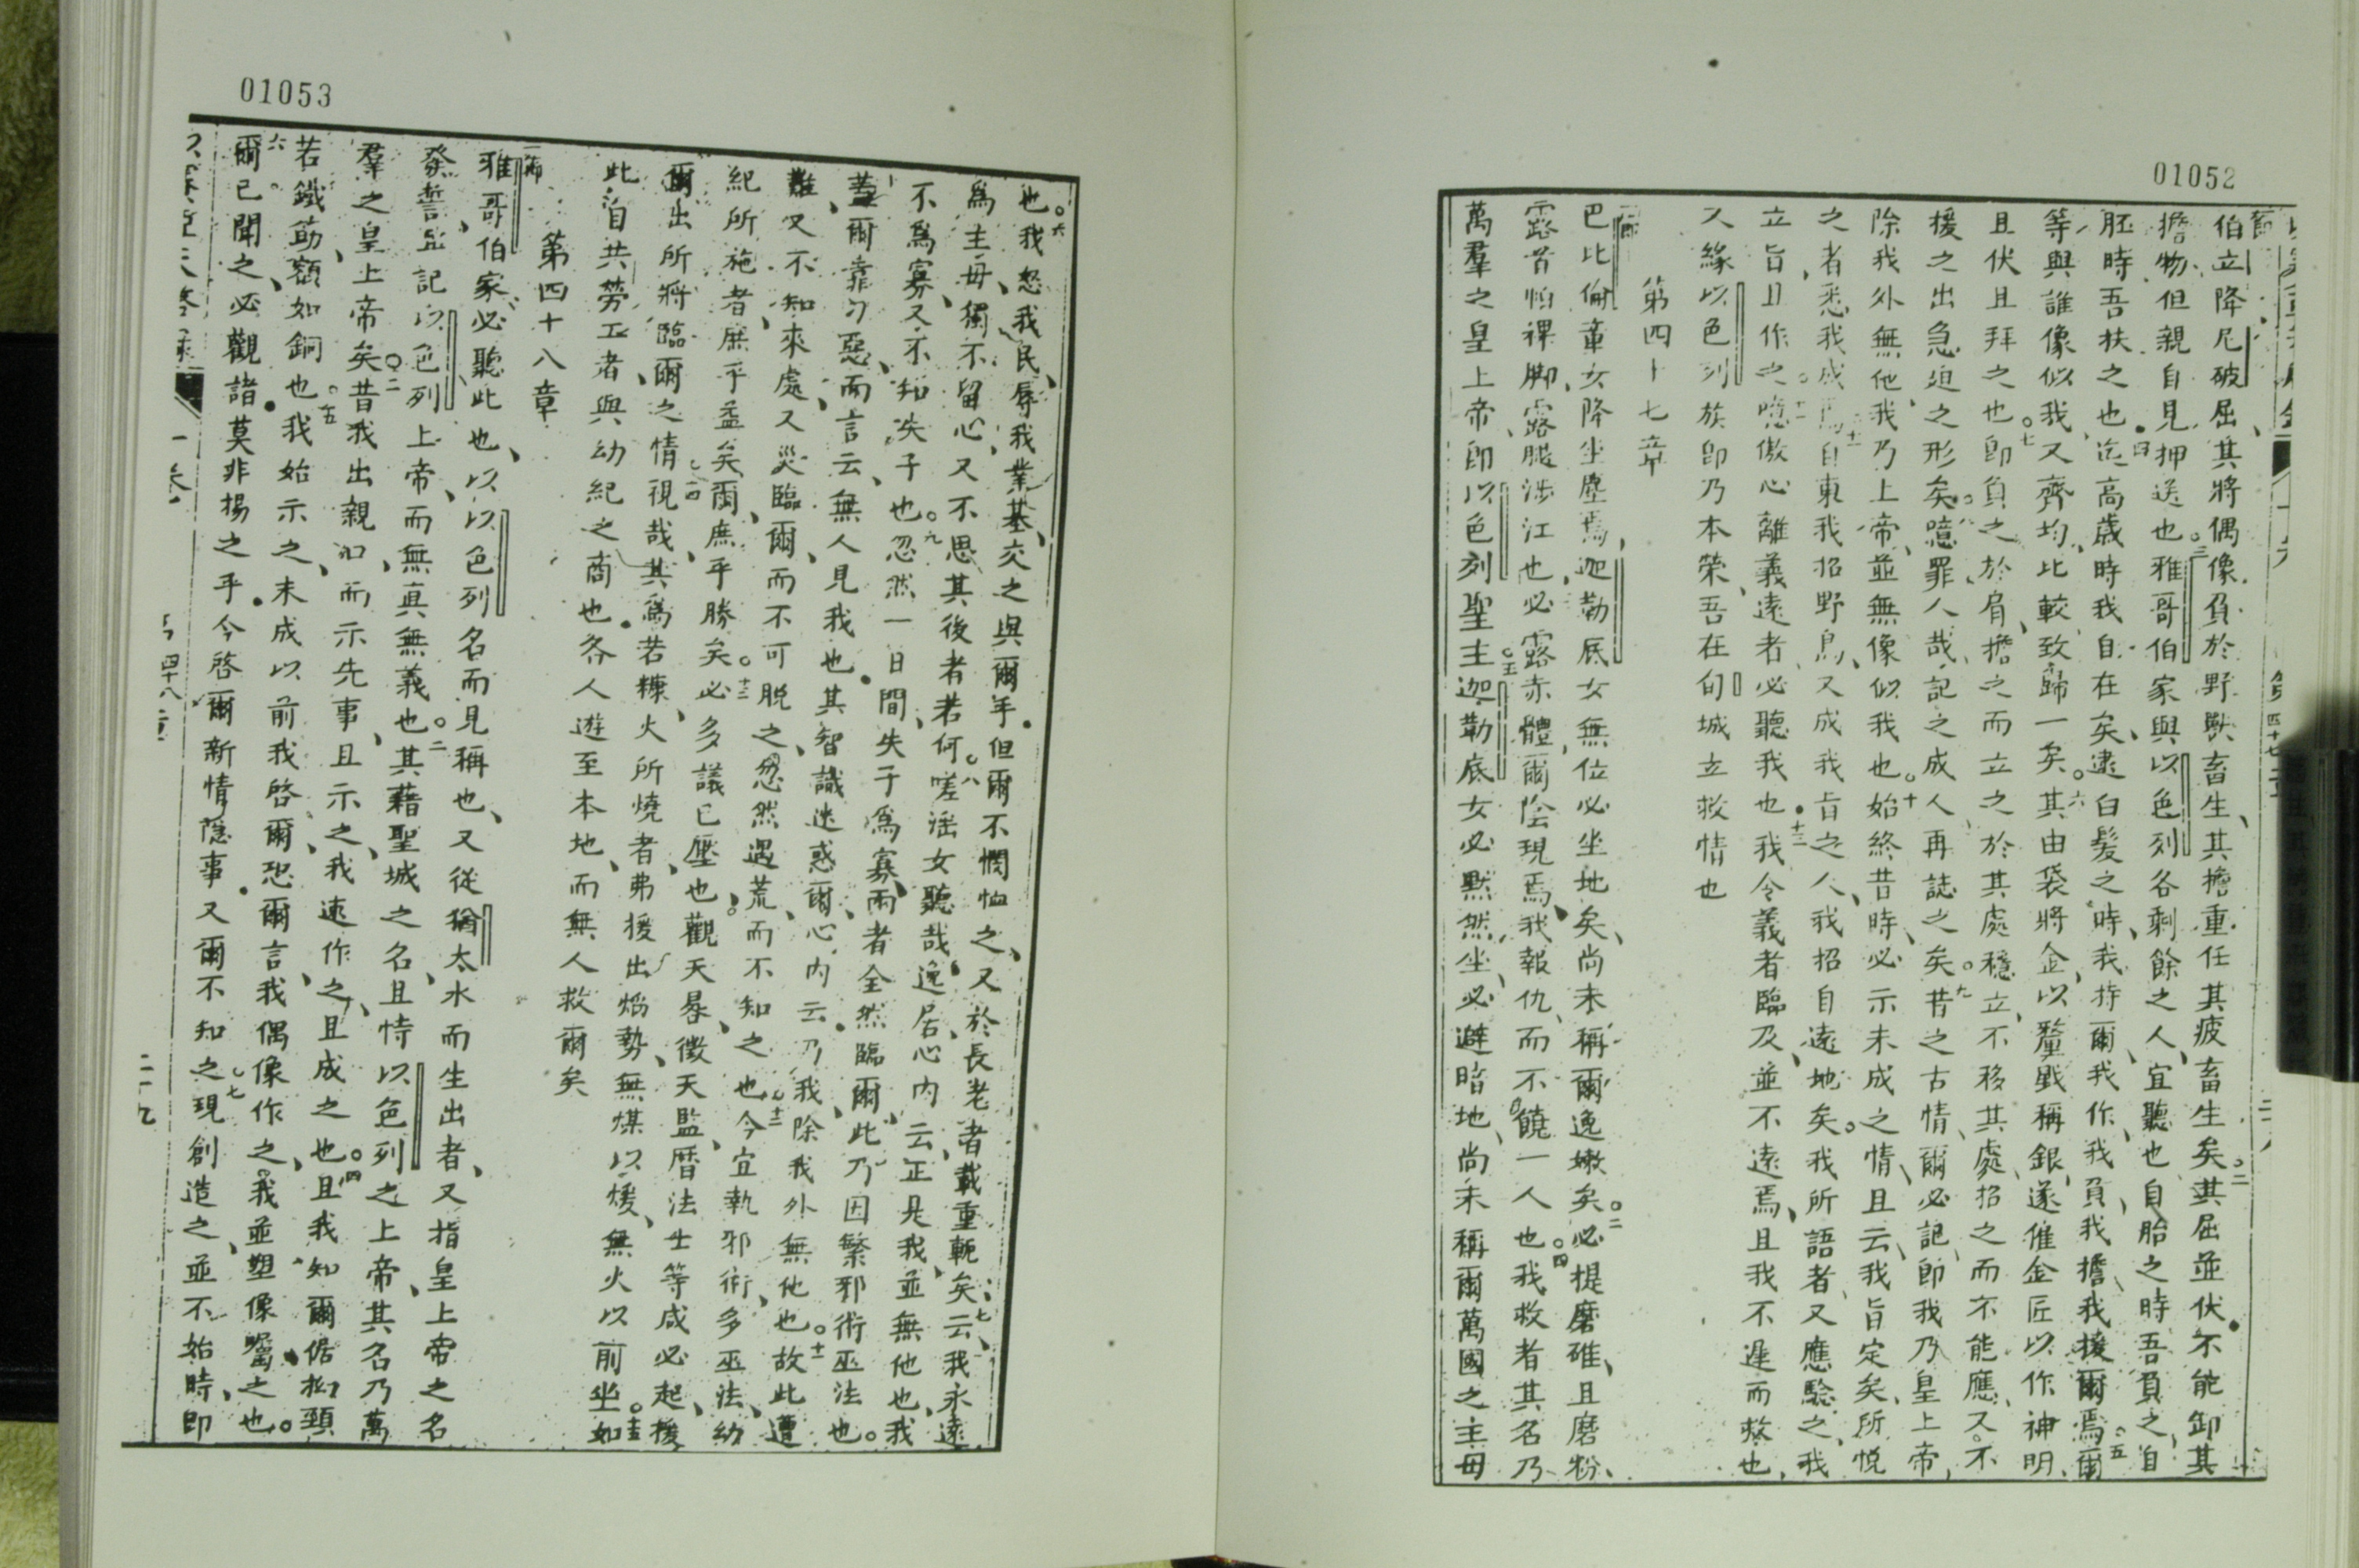 01052
伯立降尼破屈其將偶像負於野獸畜生其擔重任其疲畜生矣二其屈並伏不能卸其
擔物但親自見押送也三雅哥伯家與以色列各剩餘之人宜聽也自胎之時吾負之自
胚時吾扶之也四迄高歲時我自在矣逮白髮之時我持爾我作我負我擔我援爾焉五爾
等與誰像似我又齊均比較致歸一矣六其由袋將金以釐戥稱銀遂催金匠以作神明
且伏且拜之也七即負之於肩擔之而立之於其處穩立不移其處招之而不能應又不
援之出急迫之形矣八噫罪人哉記之成人再誌之矣九昔之古情爾必記即我乃皇上帝
除我外無他我乃上帝並無像似我也十始終昔時必示未成之情且云我旨定矣所悅
之者悉我成焉十一自東我招野鳥又成我旨之人我招自遠地矣我所語者又應驗之我
立旨且作之十二噫傲心離義遠者必聽我也十三我令義者臨及並不遠焉且我不遲而救也
又緣以色列族即乃本榮吾在旬城立救情也
第四十七章
巴比倫童女降坐塵焉迦勒底女無位必坐地矣尚未稱爾逸嫩矣二必提磨碓且磨粉
露首怕裸脚露腿涉江也必露赤體爾陰現焉我報仇而不饒一人也四我救者其名乃
萬羣之皇上帝即以色列聖主五迦勒底女必默然坐必避暗地尚未稱爾萬國之主母
01053
也六我忽我民辱我業基交之與爾手但爾不憫恤之又於長老者載重軛矣七云我永遠
爲主母獨不留心又不思其後者若何八嗟淫女聽哉逸居心内云正是我並無他也我
不爲寡又不知失子也九忽然一日間失子爲寡兩者全然臨爾此乃因繁邪術巫法也
蓋爾靠乃惡而言云無人見我也其智識迷惑爾心内云乃我除我外無他也十一故此遭
難又不知來處又災臨爾而不可脫之忽然遇荒而不知之也十二今宜執邪術多巫法幼
紀所施者庶乎益矣爾庶乎勝矣十三必多議已壓也觀天晷徵天監曆法士等咸必起援
爾出所將臨爾之情視哉十四其爲若糠火所燒者弗援出焰勢無煤以煖無火以前坐十五如
此自共勞工者與幼紀之商也各人遊至本地而無人救爾矣
第四十八章
雅哥伯家必聽此也以以色列名而見稱也又從猶太水而生出者又指皇上帝之名
發誓並記以色列上帝而無真無義也二其藉聖城之名且恃以色列之上帝其名乃萬
羣之皇上帝矣昔我出親口而示先事且示之我速作之且成之也四且我知爾倨拗頸
若鐵筋額如銅也五我始示之未成以前我啓爾恐爾言我偶像作之我並塑像囑之也
六爾已聞之必觀諸莫非揚之乎今啓爾新情隱事又爾不知之七現創造之並不始時即